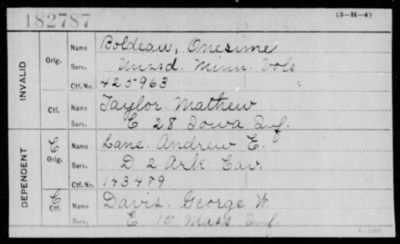 182787
(3-M-4)
INVALID
Orig.
Name Boldeau, Onesime
Serv. Unasd. Minn. Vols
Ctf. No. 425963
Ctf.
Name Taylor Mathew
Serv. E 28 Iowa Inf.
DEPENDENT
C Orig.
Name Lane. Andrew E.
Serv. D 2 Ark Cav
Ctf. No. 143479
C Ctf.
Name Davis. George W.
Serv. E 15 Mass Inf.